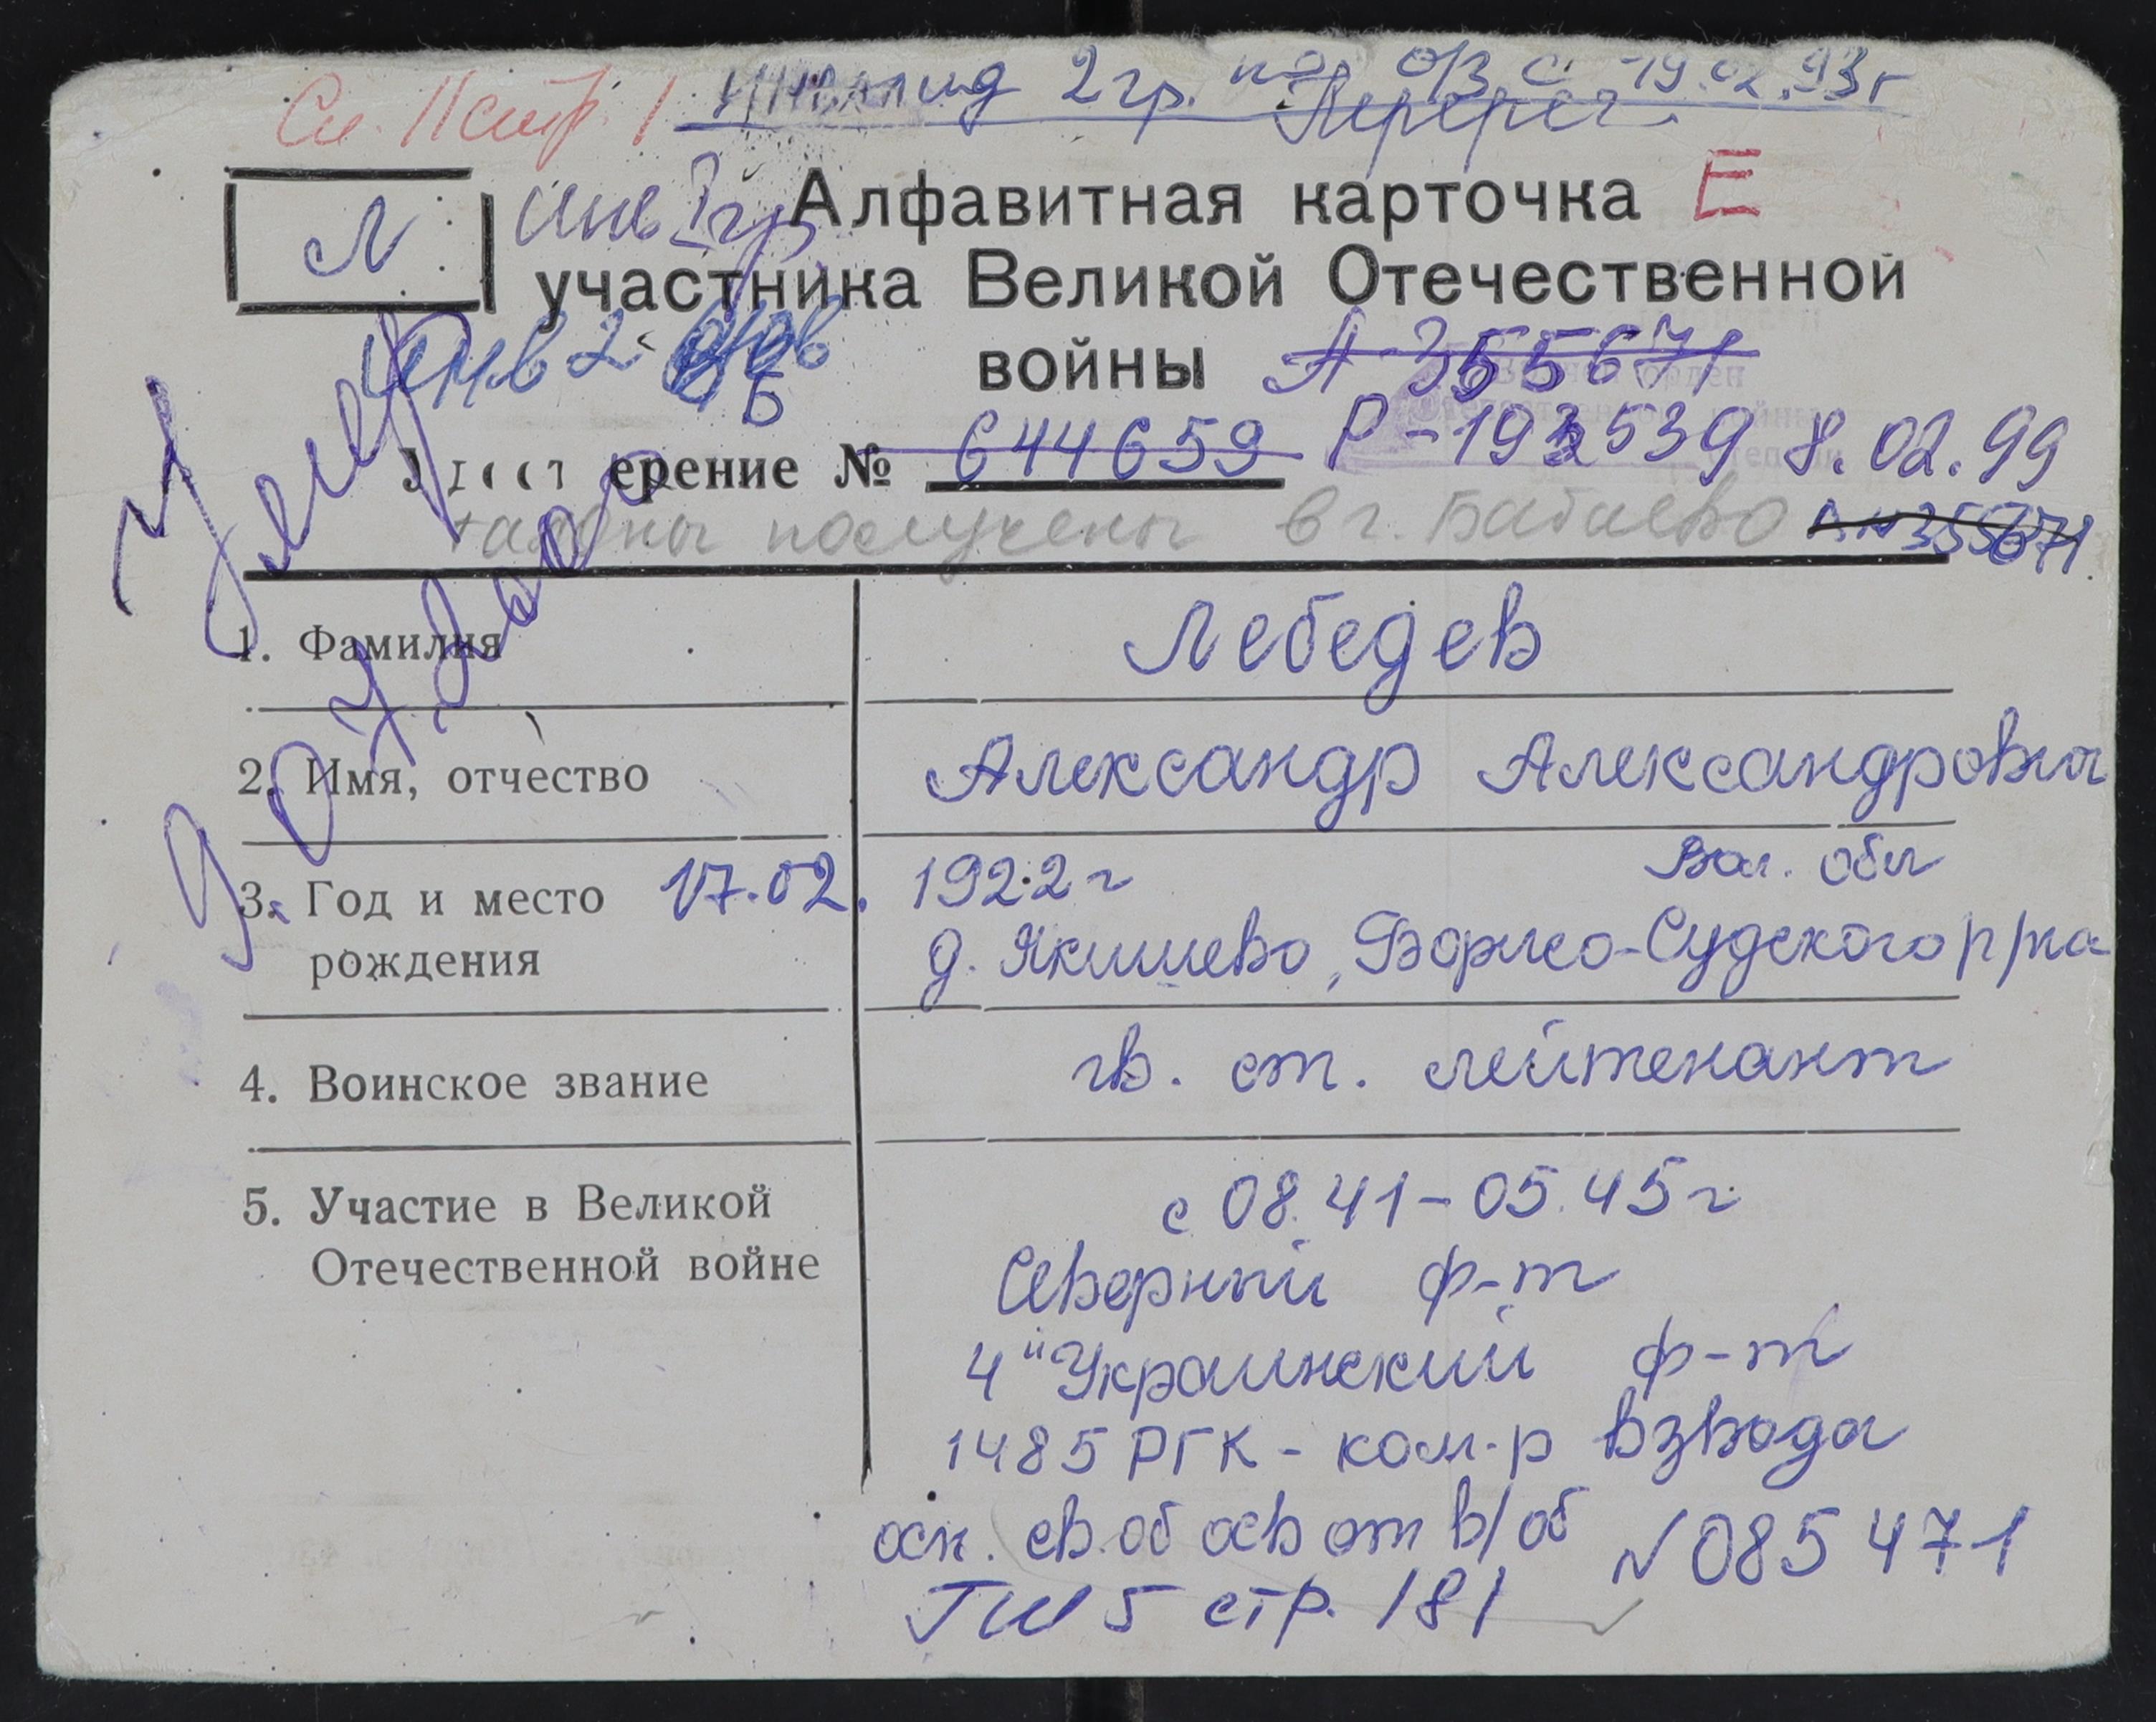 См. IIстр.!
Инвалид 2 гр. по о/з с 19.02.93г
Перерег.
Л
Инв I гр
Алфавитная карточка Е
участника Великой Отечественной
войны А-355671
Инв 2
Б
ерение № 644659 Р-193539 8.02.99
талоны получены в г. Бабаево
А №355671
Умер
1. Фамилия Лебедев
2. Имя, отчество Александр Александрович
3. Год и место рождения 17.02.1922г Вол. обл
д. Якишево, Борисо-Судского р/на
4. Воинское звание гв. ст. лейтенант
5. Участие в Великой
Отечественной войне
с 08.41-05.45г
Северный ф-т
4й Украинский ф-т
1485 РГК - ком-р взвода
осн. св. об осв от в/об №085471
ГШ 5 стр. 181